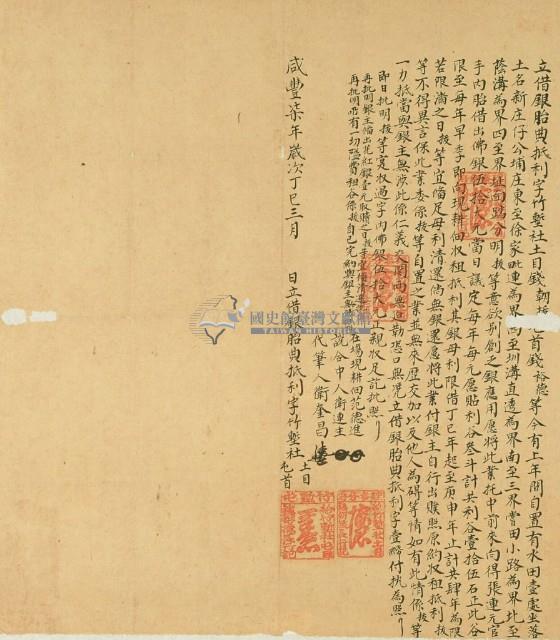 立借銀胎典抵利字竹塹社土目錢朝拔屯首錢裕德等今有上年間自置有水田壹處坐落
土名新庄仔公埔庄東至徐家毗連為界西至圳溝直透為界南至三界曹田小路為界北至
蔭溝為界四至界址面踏分明拔等意欲別創乏銀應用愿將此業托中前來向得張連元官
手內胎借出佛銀伍拾大元當日議定每年每元愿貼利谷叁斗計共利谷壹拾伍石正此谷
限至每年早季即向現耕佃收租抵利其銀母利限借丁巳年起至庚申年止計共肆年為限
若限滿之日拔等宜備足母利清還倘無銀還愿將此業付銀主自行出贌照原約收租抵利拔
等不得異言保此業委係拔等自置之業並無來歷交加以及他人為碍等情如有此情係拔等
一力抵當與銀主無涉此係仁義交關兩無迫勒恐口無凭立借銀胎典抵利字壹紙付執為照
即日批明拔等寔收過字內佛銀伍拾大元正親收足訖批照
再批明銀主備出花紅銀壹元取贖之日拔等宜備清
再批明所有一切隘費租谷係拔自己完約與銀主無
在場現耕佃范德進
說合中人衛連主
代筆人衛奎昌
咸豐柒年歲次丁巳三月 日立借銀胎典抵利字竹塹社土目屯首
國史館臺灣文獻館
TAIWAN HISTORICA